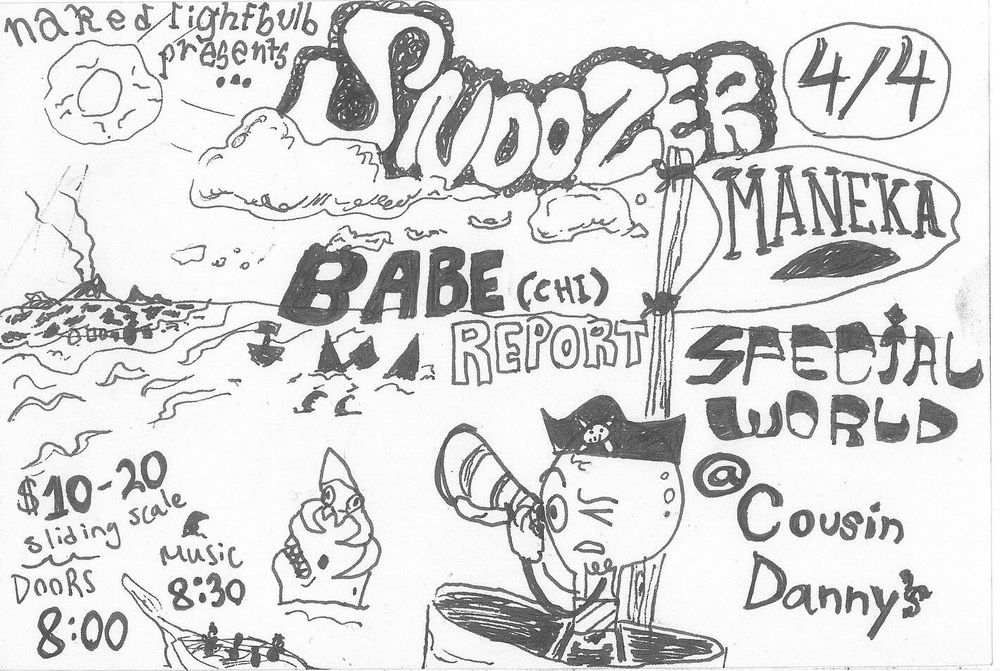 naked lightbulb
presents
...
SNOOZER
4/4
MANEKA
BABE (CHI)
REPORT
SPECIAL
WORLD
@
Cousin
Danny's
$10-20
sliding scale
DOORS
8:00
MUSIC
8:30